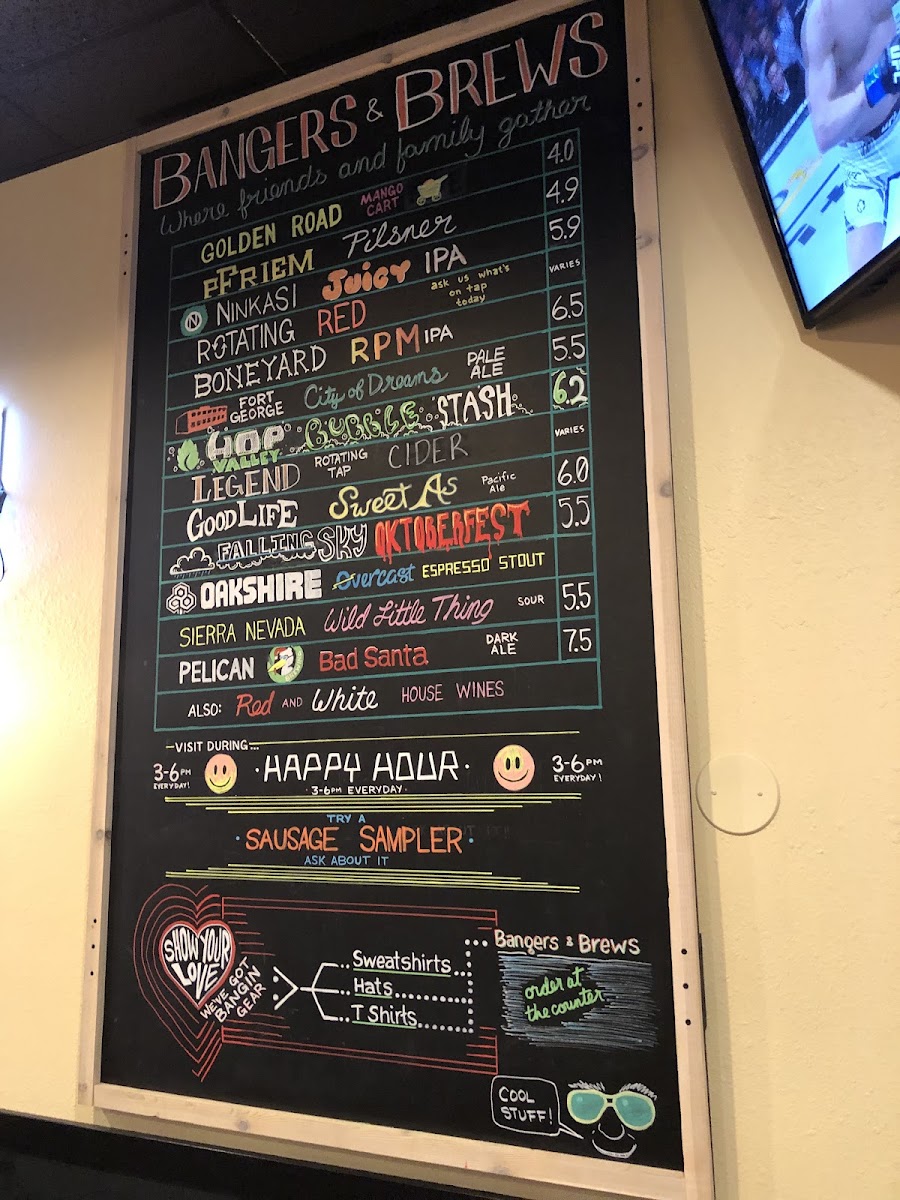 BANGERS & BREWS
Where friends and family gathar
GOLDEN ROAD MANGO CART 4.0
pFRIEM Pilsner 4.9
N NINKASI JUICY IPA 5.9
ROTATING RED ask us what's on tap today VARIES
BONEYARD RPM IPA 6.5
FORT GEORGE City of Dreams PALE ALE 5.5
HOP VALLEY BUBBLE STASH 6.2
LEGEND ROTATING TAP CIDER VARIES
GOODLIFE Sweet As Pacific Ale 6.0
FALLING SKY OKTOBERFEST 5.5
OAKSHIRE Overcast ESPRESSO STOUT
SIERRA NEVADA Wild Little Thing SOUR 5.5
PELICAN Bad Santa DARK ALE 7.5
ALSO: Red AND White HOUSE WINES
VISIT DURING...
3-6PM EVERYDAY! HAPPY HOUR 3-6PM EVERYDAY!
3-6PM EVERYDAY
TRY A
SAUSAGE SAMPLER
ASK ABOUT IT
SHOW YOUR LOVE
WE'VE GOT BANGIN GEAR
Sweatshirts
Hats
T Shirts
Bangers & Brews
order at
the counter
COOL
STUFF!
UFC